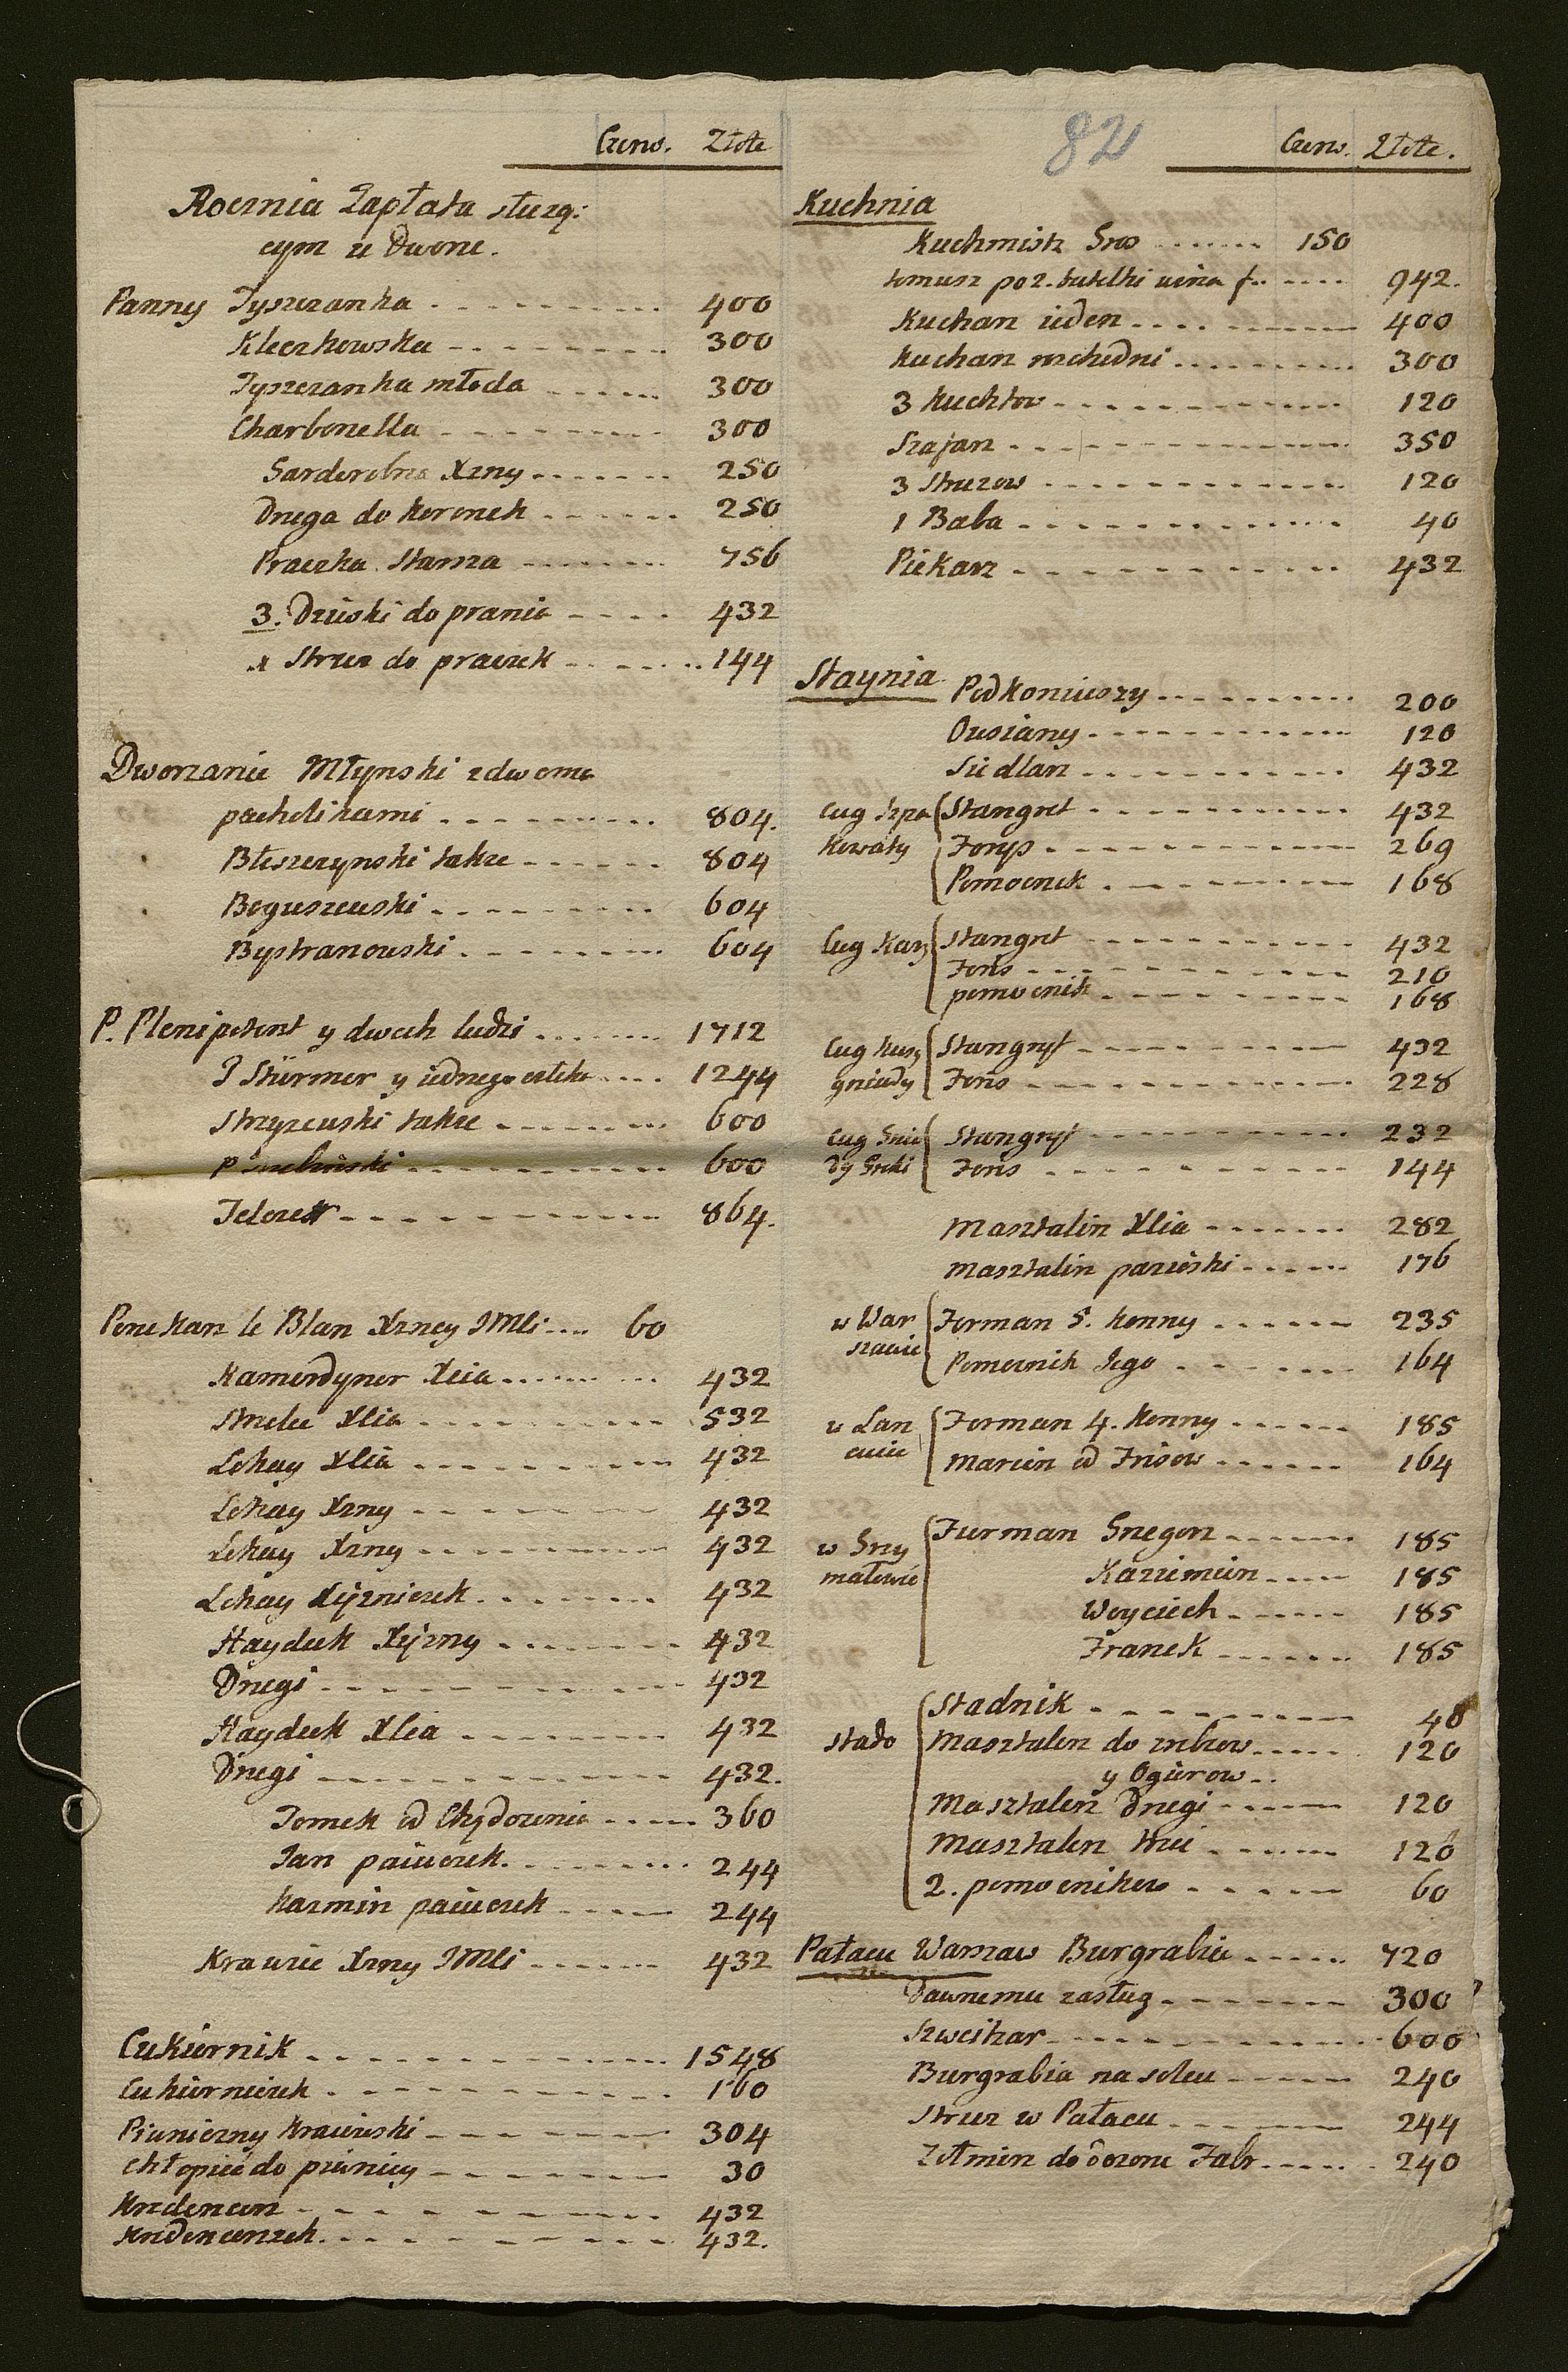 Czerw. Złote
Rocznia Zapłata służą:
cym u Dworu.
Panny Tyszczanka 400
Kleczkowska 300
Tyszczanka młoda 300
Charbonella 300
Garderobna Xzny 250
Druga do koronek 250
Praczka Starsza 756
3. Dziwki do prania 432
1 Struz do praczek 144
Dworzanie Młynski z dwoma
pacholikami 804.
Błeszczynski także 804
Boguszewski 604
Bystranowski 604
P. Plenipotent y dwoch ludzi 1712
P Stürmer y iednego człeka 1244
Strzyzewski takze 600
600
864.
le Blan Xzney JMci 60
Kamerdyner Xcia 432
Strzelec Xcia 532
Lokay Xcia 432
Lokay Xzny 432
Lokay Xzny 432
Lokay Xiężniczek 432
Hayduk Xiężny 432
Drugi 432
Hayduk Xcia 432
Drugi 432.
Tomek od Chędozenia 360
Jan paiuczek 244
Kazmirz paiuczek 244
Krawiec Xzny JMci 432
Cukiernik 1548
Cukierniczek 160
Piwniczny Krawiński 304
chłopiec do piwnicy 30
Kredencerz 432
Kredencerzek 432.
82
Czerw. Złote.
Kuchnia
Kuchmistrz Gros 150
temusz po 2. butelki wina f. 942.
Kucharz ieden 400
Kucharz rozchodni 300
3 Kuchtow 120
Szafarz 350
3 Struzow 120
1 Baba 40
Piekarz 432
Staynia Podkoniuszy 200
Owsiany 120
Siedlarz 432
Cug szpa Stangret 432
kowaty Forys 269
Pomocnik 168
Cug Kary Stangret 432
Foris 210
pomocnik 168
Cug kusy Stangryt 432
gniady Foris 228
Cug Gnia Stangryt 232
dy Grcki Foris 144
Masztalirz Xcia 282
Masztalirz paziuski 176
w War Forman 5. konny 235
szawie Pomocnik Jego 164
w Lan Forman 4. konny 185
cucie Marcin od Frisow 164
w Grzy Furman Gregorz 185
małowie Kazimierz 185
Woyciech 185
Franek 185
Stadnik 40
Stado Masztalerz do zrebcow 120
y Ogierow
Masztalerz Drugi 120
Masztalerz trzeci 120
2. pomocnikow 60
Pałacu Warszaw Burgrabia 720
Dawnemu zasług 300
Szweitzar 600
Burgrabia na solcu 240
Struz w Pałacu 244
Zołnierz do dozoru Fabr 240